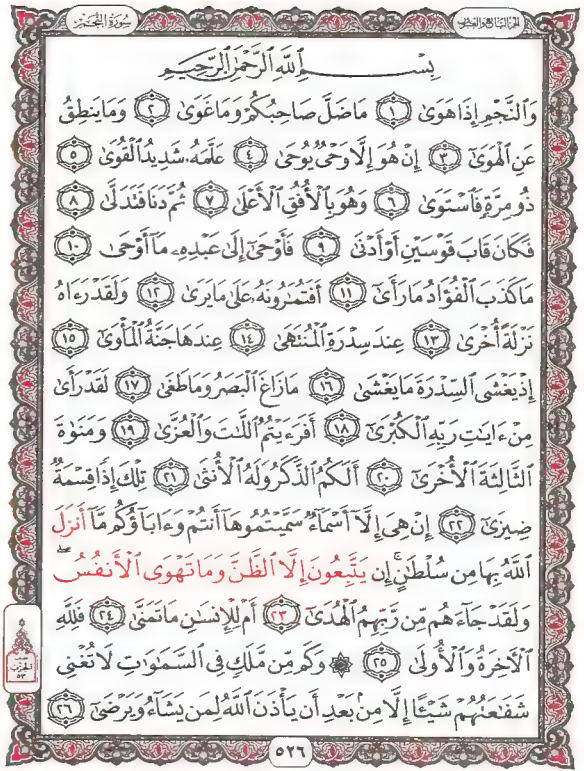 الجزء السابع والعشرون
سُورَةُ النَّجْمِ
بِسْمِ ٱللَّهِ ٱلرَّحْمَٰنِ ٱلرَّحِيمِ
وَٱلنَّجْمِ إِذَا هَوَىٰ ١ مَا ضَلَّ صَاحِبُكُمْ وَمَا غَوَىٰ ٢ وَمَا يَنطِقُ
عَنِ ٱلْهَوَىٰٓ ٣ إِنْ هُوَ إِلَّا وَحْىٌ يُوحَىٰ ٤ عَلَّمَهُۥ شَدِيدُ ٱلْقُوَىٰ ٥
ذُو مِرَّةٍ فَٱسْتَوَىٰ ٦ وَهُوَ بِٱلْأُفُقِ ٱلْأَعْلَىٰ ٧ ثُمَّ دَنَا فَتَدَلَّىٰ ٨
فَكَانَ قَابَ قَوْسَيْنِ أَوْ أَدْنَىٰ ٩ فَأَوْحَىٰٓ إِلَىٰ عَبْدِهِۦ مَآ أَوْحَىٰ ١٠
مَا كَذَبَ ٱلْفُؤَادُ مَا رَأَىٰٓ ١١ أَفَتُمَٰرُونَهُۥ عَلَىٰ مَا يَرَىٰ ١٢ وَلَقَدْ رَءَاهُ
نَزْلَةً أُخْرَىٰ ١٣ عِندَ سِدْرَةِ ٱلْمُنتَهَىٰ ١٤ عِندَهَا جَنَّةُ ٱلْمَأْوَىٰٓ ١٥
إِذْ يَغْشَى ٱلسِّدْرَةَ مَا يَغْشَىٰ ١٦ مَا زَاغَ ٱلْبَصَرُ وَمَا طَغَىٰ ١٧ لَقَدْ رَأَىٰ
مِنْ ءَايَٰتِ رَبِّهِ ٱلْكُبْرَىٰٓ ١٨ أَفَرَءَيْتُمُ ٱللَّٰتَ وَٱلْعُزَّىٰ ١٩ وَمَنَوٰةَ
ٱلثَّالِثَةَ ٱلْأُخْرَىٰٓ ٢٠ أَلَكُمُ ٱلذَّكَرُ وَلَهُ ٱلْأُنثَىٰ ٢١ تِلْكَ إِذًا قِسْمَةٌ
ضِيزَىٰٓ ٢٢ إِنْ هِىَ إِلَّآ أَسْمَآءٌ سَمَّيْتُمُوهَآ أَنتُمْ وَءَابَآؤُكُم مَّآ أَنزَلَ
ٱللَّهُ بِهَا مِن سُلْطَٰنٍ ۚ إِن يَتَّبِعُونَ إِلَّا ٱلظَّنَّ وَمَا تَهْوَى ٱلْأَنفُسُ ۖ
وَلَقَدْ جَآءَهُم مِّن رَّبِّهِمُ ٱلْهُدَىٰٓ ٢٣ أَمْ لِلْإِنسَٰنِ مَا تَمَنَّىٰ ٢٤ فَلِلَّهِ
ٱلْءَاخِرَةُ وَٱلْأُولَىٰ ٢٥ ۞ وَكَم مِّن مَّلَكٍ فِى ٱلسَّمَٰوَٰتِ لَا تُغْنِى
شَفَٰعَتُهُمْ شَيْـًٔا إِلَّا مِنۢ بَعْدِ أَن يَأْذَنَ ٱللَّهُ لِمَن يَشَآءُ وَيَرْضَىٰٓ ٢٦
نصف
الحزب
٥٣
٥٢٦